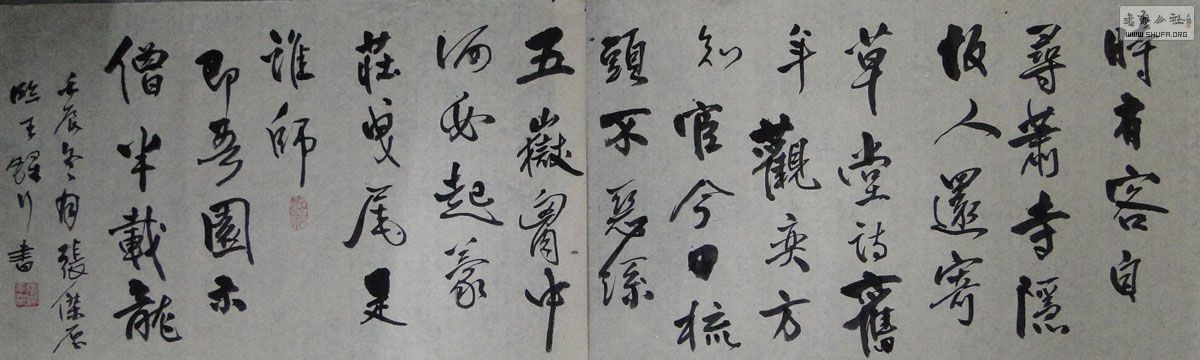 時有容自
尋蕭寺隱
故人還寄
草堂詩舊
年觀奕方
知官今日梳
頭不惡絲
五嶽胸中
何必起蒙
莊曳尾是
誰師
即吾園亦
僧半載龍
壬辰冬月張傑石
臨王鐸行書
書法公社
WWW.SHUFA.ORG